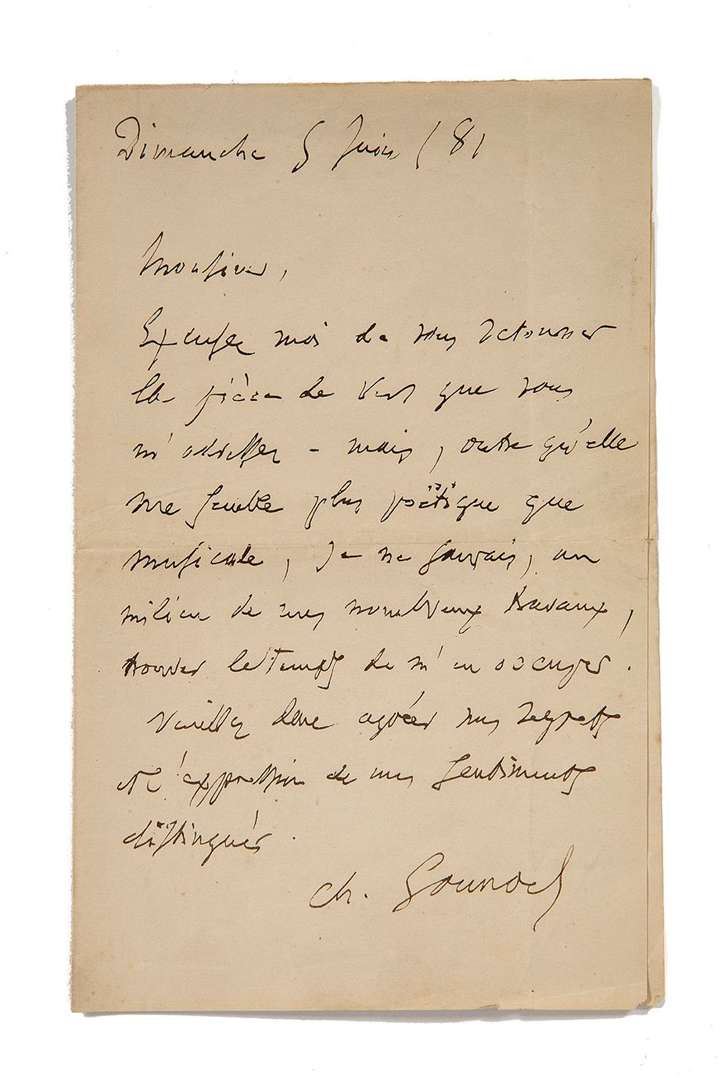 Dimanche 5 Juin / 81
Monsieur,
Excusez moi de vous retourner
la pièce de vers que vous
m'adressez - mais, outre qu'elle
me semble plus poëtique que
musicale, je ne saurais, au
milieu de mes nombreux travaux,
trouver le temps de m'en occuper.
Veuillez donc agréer mes regrets
et l'expression de mes sentiments
distingués.
Ch. Gounod